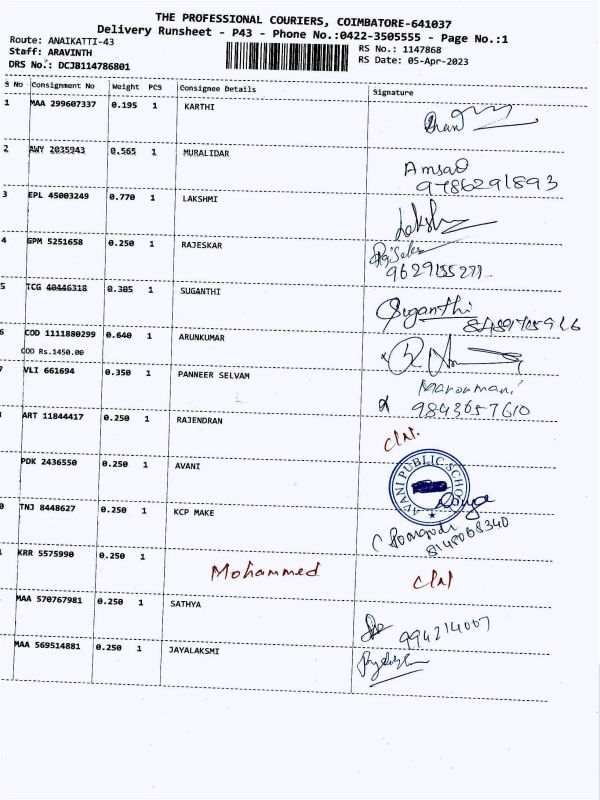 THE PROFESSIONAL COURIERS, COIMBATORE-641037
Delivery Runsheet - P43 - Phone No.:0422-3505555 - Page No.:1
Route: ANAIKATTI-43
Staff: ARAVINTH
DRS No.: DCJB114786801
RS No.: 1147868
RS Date: 05-Apr-2023
S No Consignment No Weight PCS Consignee Details Signature
1 MAA 299607337 0.195 1 KARTHI
2 AWY 2035943 0.565 1 MURALIDAR
9786291893
3 EPL 45003249 0.770 1 LAKSHMI
4 GPM 5251658 0.250 1 RAJESKAR
9629155271
5 TCG 40446318 0.305 1 SUGANTHI Suganthi
6 COD 1111880299 0.640 1 ARUNKUMAR
COD Rs.1450.00
7 VLI 661694 0.350 1 PANNEER SELVAM
9843657610
ART 11844417 0.250 1 RAJENDRAN
PDK 2436550 0.250 1 AVANI
PUBLIC SCHOOL
0 TNJ 8448627 0.250 1 KCP MAKE
KRR 5575990 0.250 1 Mohammed
MAA 570767981 0.250 1 SATHYA
994214007
MAA 569514881 0.250 1 JAYALAKSMI